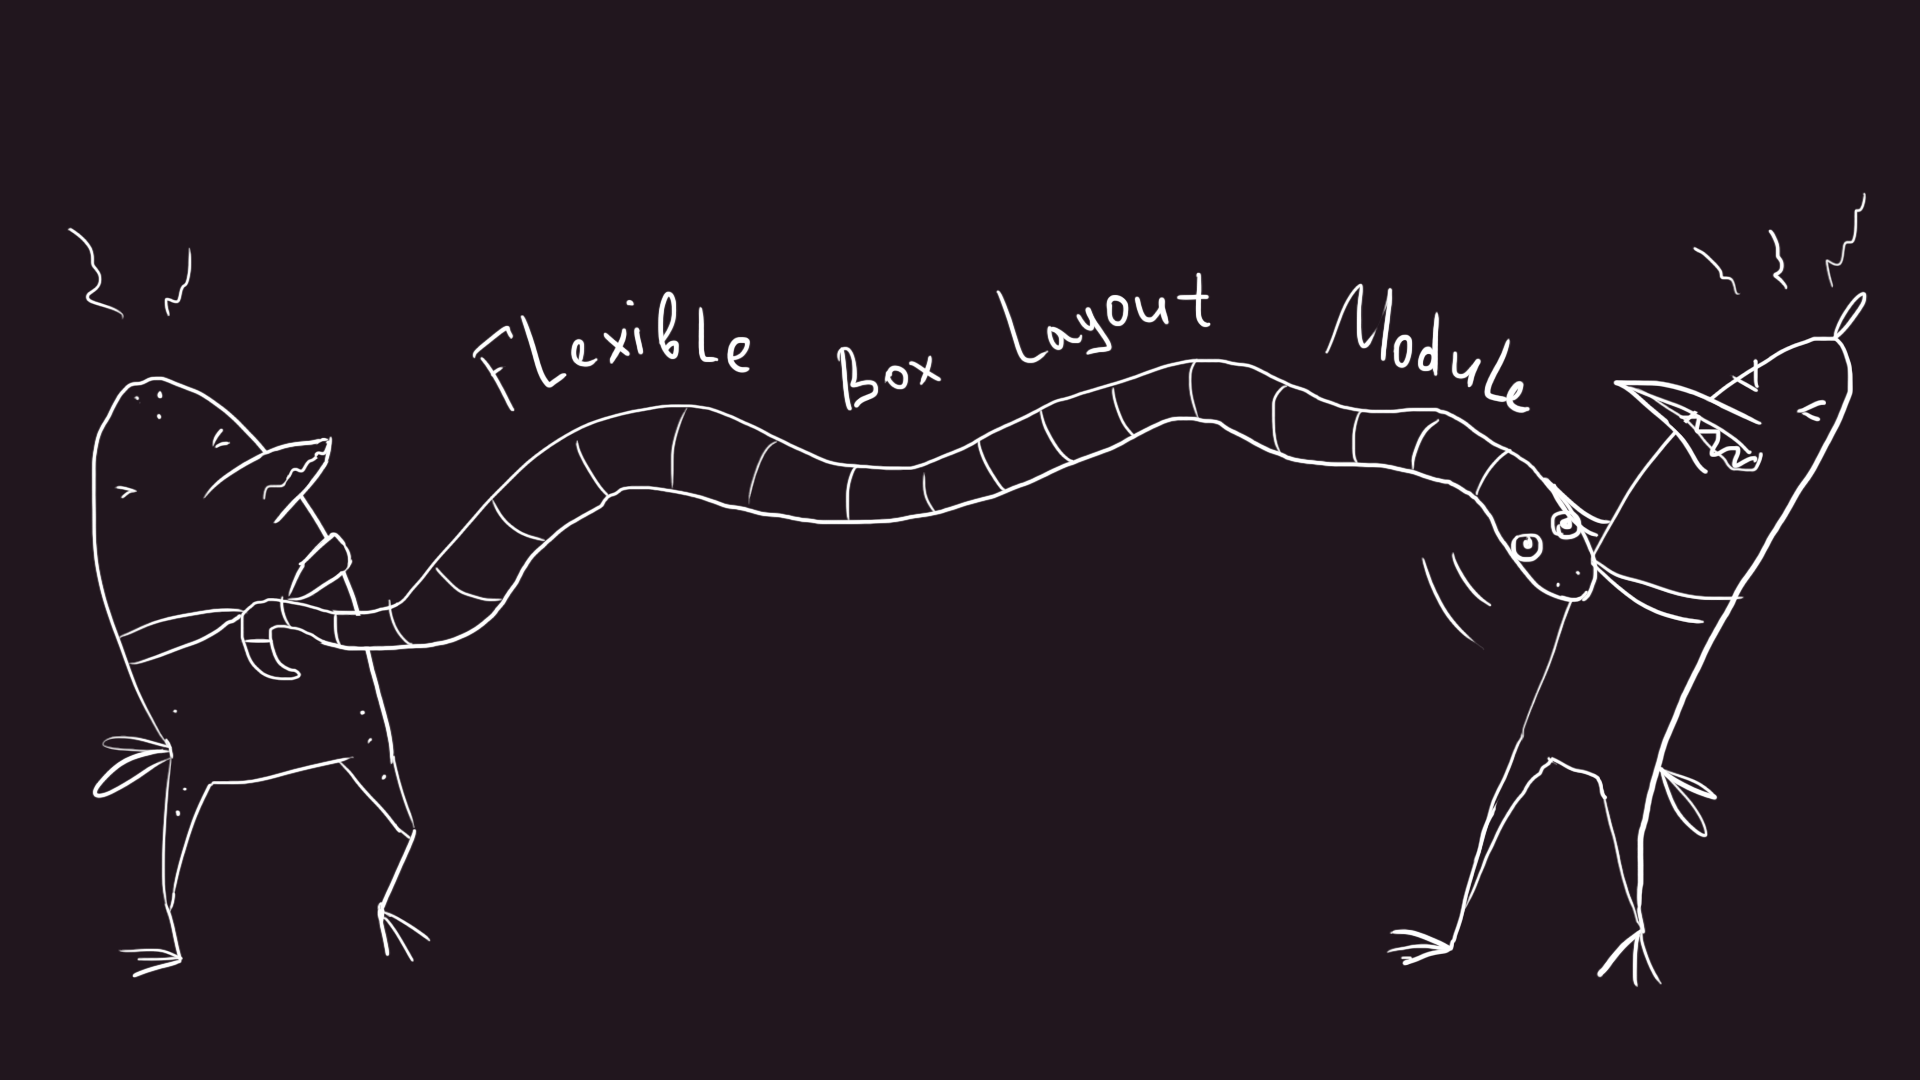 Flexible Box Layout Module